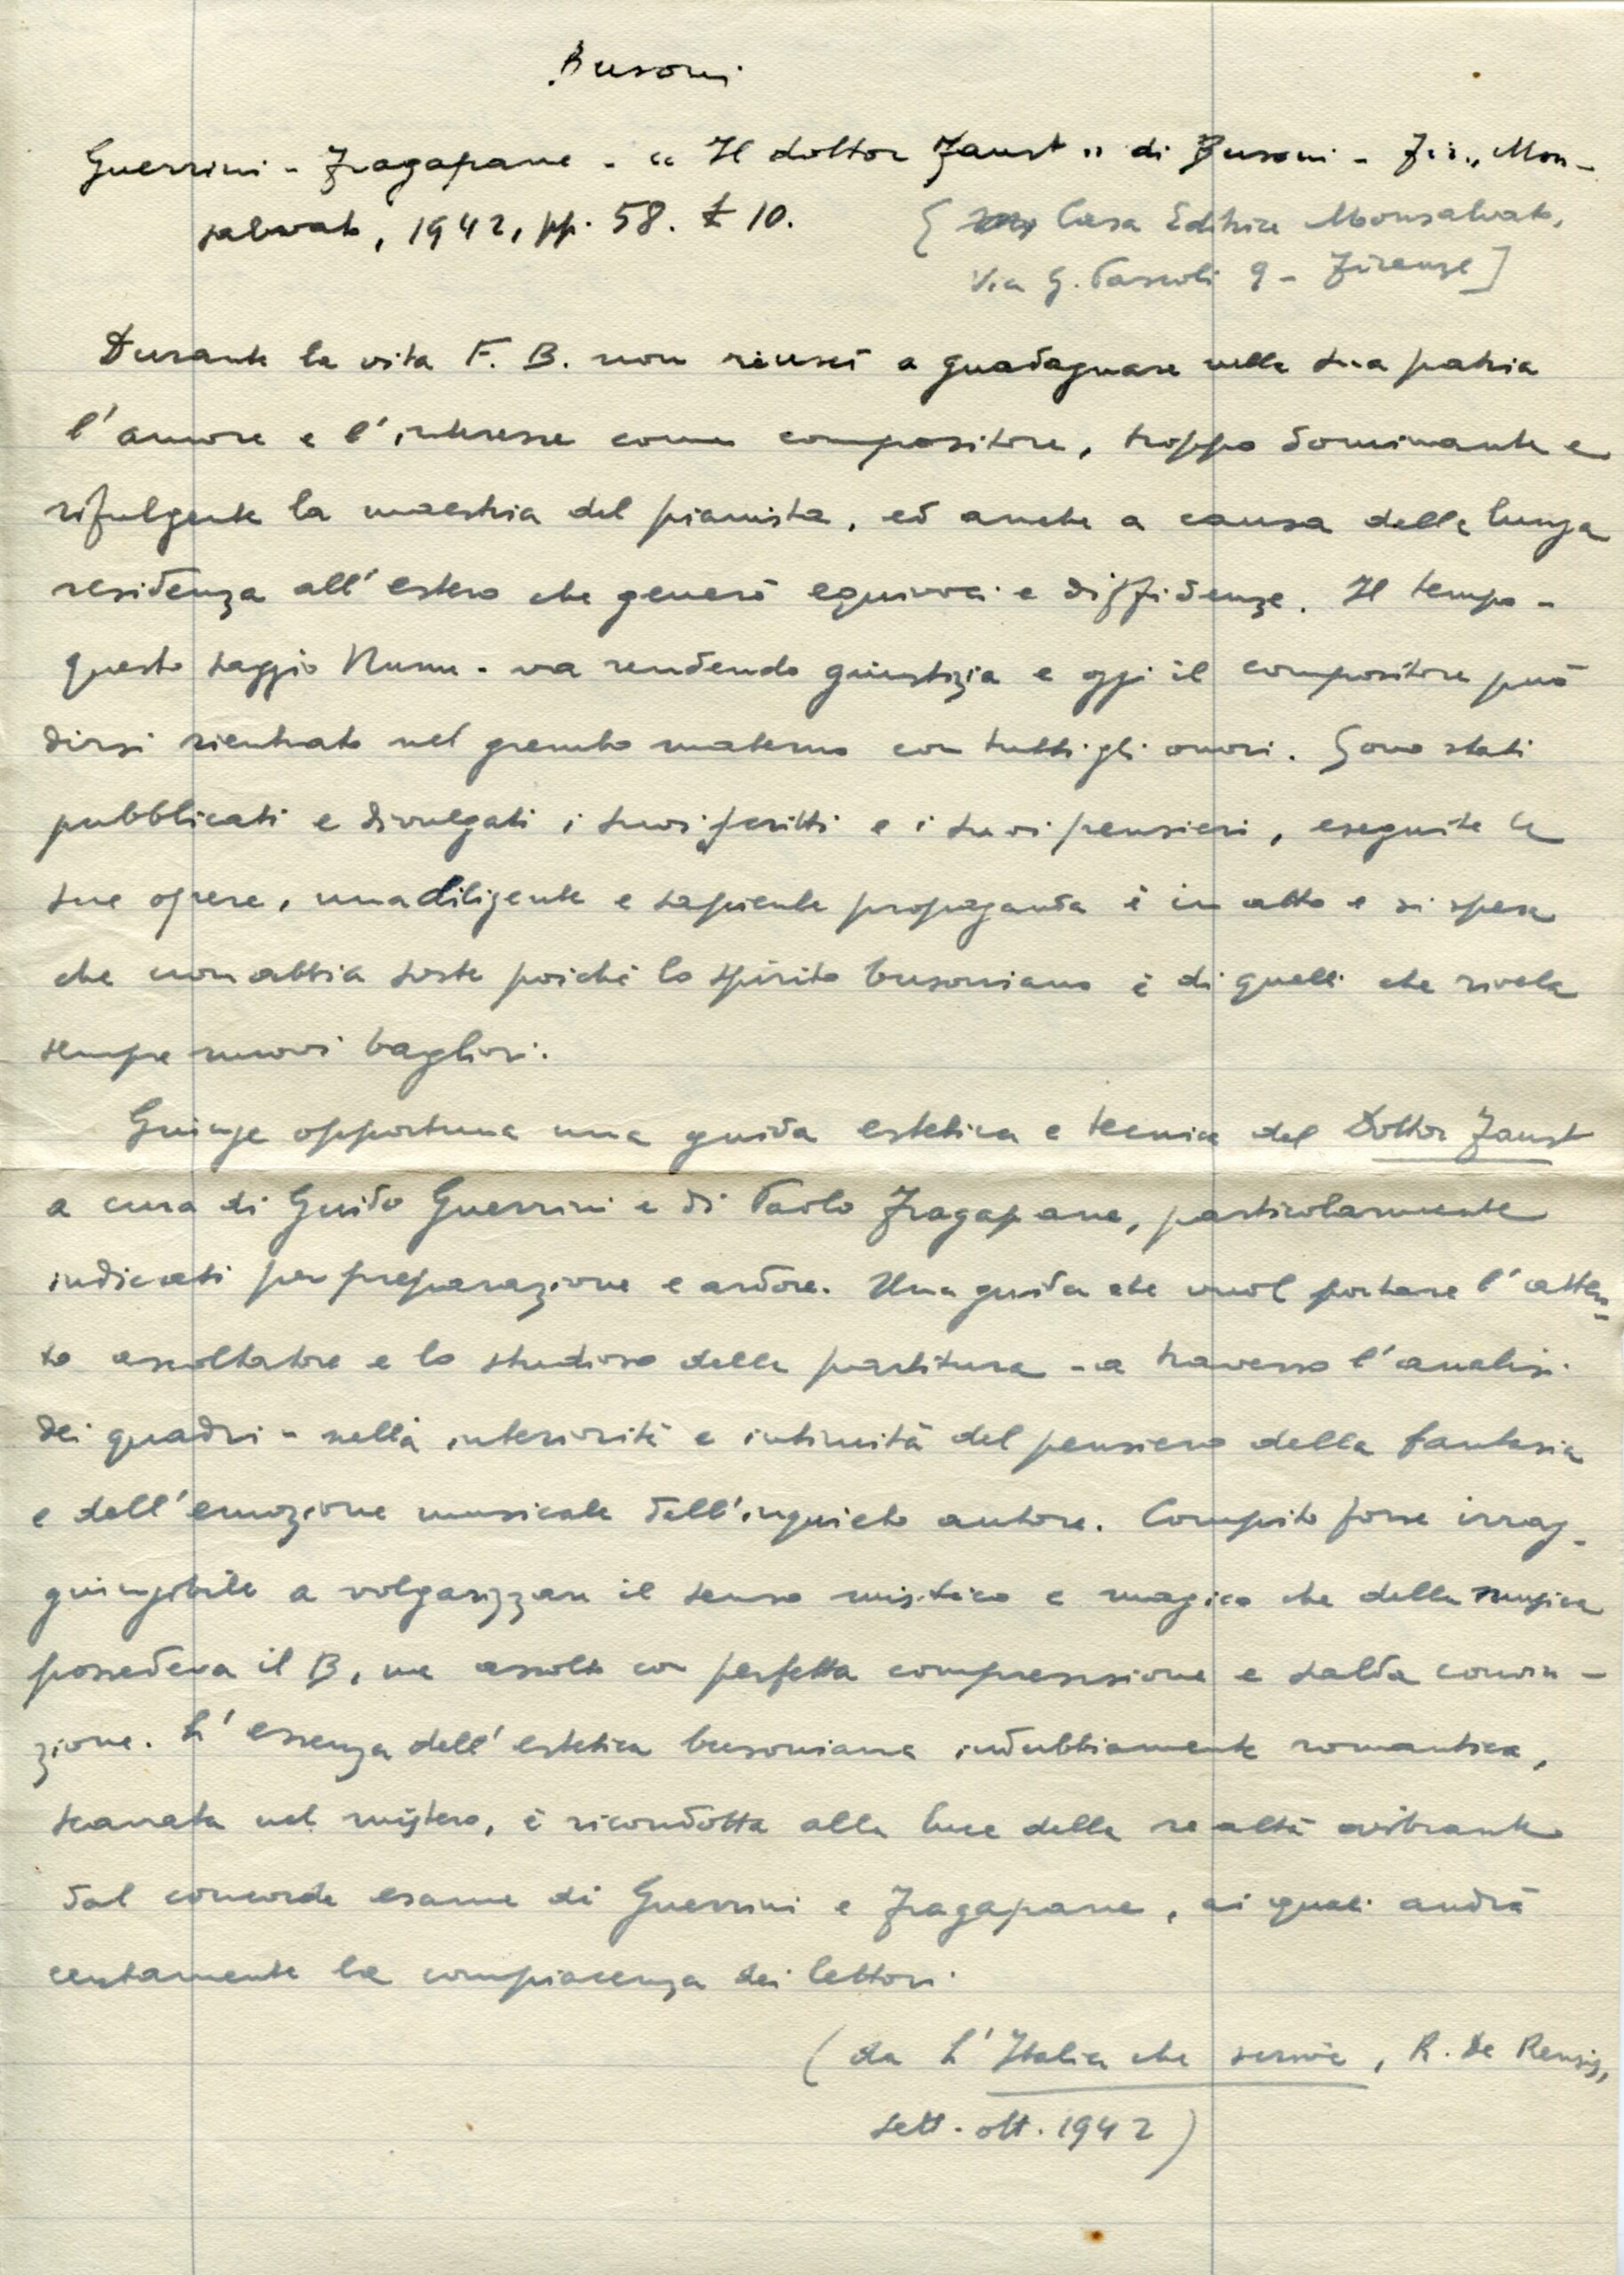 Busoni
Guerrini - Fragapane - « Il dottor Faust » di Busoni - Fir., Mon-
salvato, 1942, pp. 58. £ 10.
[ Casa Editrice Monsalvato,
Via G. Pascoli 9 - Firenze ]
Durante la vita F. B. non riuscì a guadagnare nella sua patria
l'amore e l'interesse come compositore, troppo dominante e
rifulgente la maestria del pianista, ed anche a causa della lunga
residenza all'estero che generò equivoci e diffidenze. Il tempo -
questo saggio Nume - va rendendo giustizia e oggi il compositore può
dirsi rientrato nel grembo materno con tutti gli onori. Sono stati
pubblicati e divulgati i suoi scritti e i suoi pensieri, eseguite le
sue opere, una diligente e sapiente propaganda è in atto e si spera
che non abbia soste poiché lo spirito busoniano è di quelli che rivela
sempre nuovi bagliori.
Giunge opportuna una guida estetica e tecnica del Dottor Faust
a cura di Guido Guerrini e di Paolo Fragapane, particolarmente
indicati per preparazione e ardore. Una guida che vuol portare l'atten-
to ascoltatore e lo studioso della partitura - a traverso l'analisi
dei quadri - nella interiorità e intimità del pensiero della fantasia
e dell'emozione musicale dell'inquieto autore. Compito forse irrag-
giungibile a volgarizzare il senso mistico e magico che della musica
possedeva il B, ma assolto con perfetta comprensione e salda convin-
zione. L'essenza dell'estetica busoniana indubbiamente romantica,
scavata nel mistero, è ricondotta alla luce della realtà vibrante
dal concorde esame di Guerrini e Fragapane, ai quali andrà
certamente la compiacenza dei lettori.
(da L'Italia che scrive, R. De Rensis,
sett. ott. 1942)